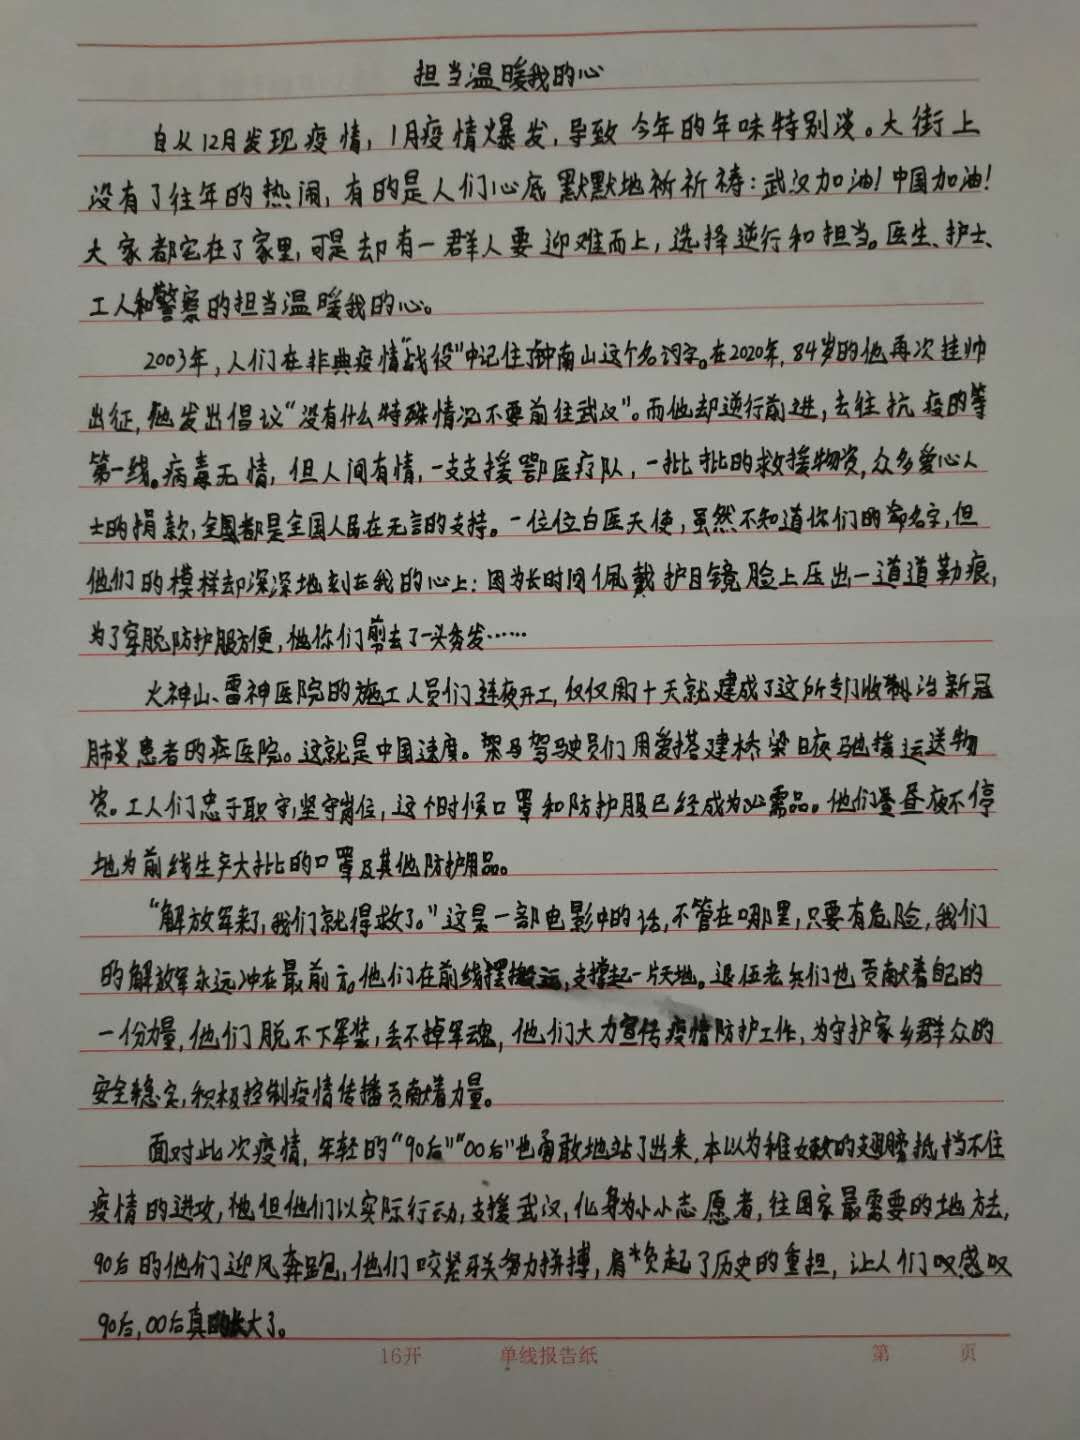 担当温暖我的心
自从12月发现疫情，1月疫情爆发，导致今年的年味特别淡。大街上
没有了往年的热闹，有的是人们心底默默地祈祈祷：武汉加油！中国加油！
大家都宅在了家里，可是却有一群人要迎难而上，选择逆行和担当。医生、护士、
工人和警察的担当温暖我的心。
2003年，人们在非典疫情"战役"中记住了钟南山这个名词字。在2020年，84岁的他再次挂帅
出征，他发出倡议“没有什么特殊情况不要前往武汉”。而他却逆行前进，去往抗疫的等
第一线。病毒无情，但人间有情，一支支援鄂医疗队，一批批的救援物资，众多爱心人
士的捐款，全国都是全国人民在无言的支持。一位位白医天使，虽然不知道你们的命名字，但
他们的模样却深深地刻在我的心上：因为长时间佩戴护目镜脸上压出一道道勒痕，
为了穿脱防护服方便，他你们剪去了一头秀发……
火神山、雷神医院的施工人员们连夜开工，仅仅用了十天就建成了这所专门收治新冠
肺炎患者的医院。这就是中国速度。驾驶员们用爱搭建桥梁日夜驰援运送物
资。工人们忠于职守，坚守岗位，这个时候口罩和防护服已经成为必需品。他们昼夜不停
地为前线生产大批的口罩及其他防护用品。
“解放军来了，我们就得救了。”这是一部电影中的话，不管在哪里，只要有危险，我们
的解放军永远冲在最前方。他们在前线搬运，支撑起一片天地。退伍老兵们也贡献着自己的
一份力量，他们脱不下军装，丢不掉军魂，他们大力宣传疫情防护工作，为守护家乡群众的
安全稳定，积极控制疫情传播贡献着力量。
面对此次疫情，年轻的“90后”“00后”也勇敢地站了出来，本以为稚嫩的翅膀抵挡不住
疫情的进攻，他但他们以实际行动，支援武汉，化身为小小志愿者，往国家最需要的地方去，
90后的他们迎风奔跑，他们咬紧牙关努力拼搏，肩负起了历史的重担，让人们叹感叹
90后，00后真的长大了。
16开 单线报告纸 第 页